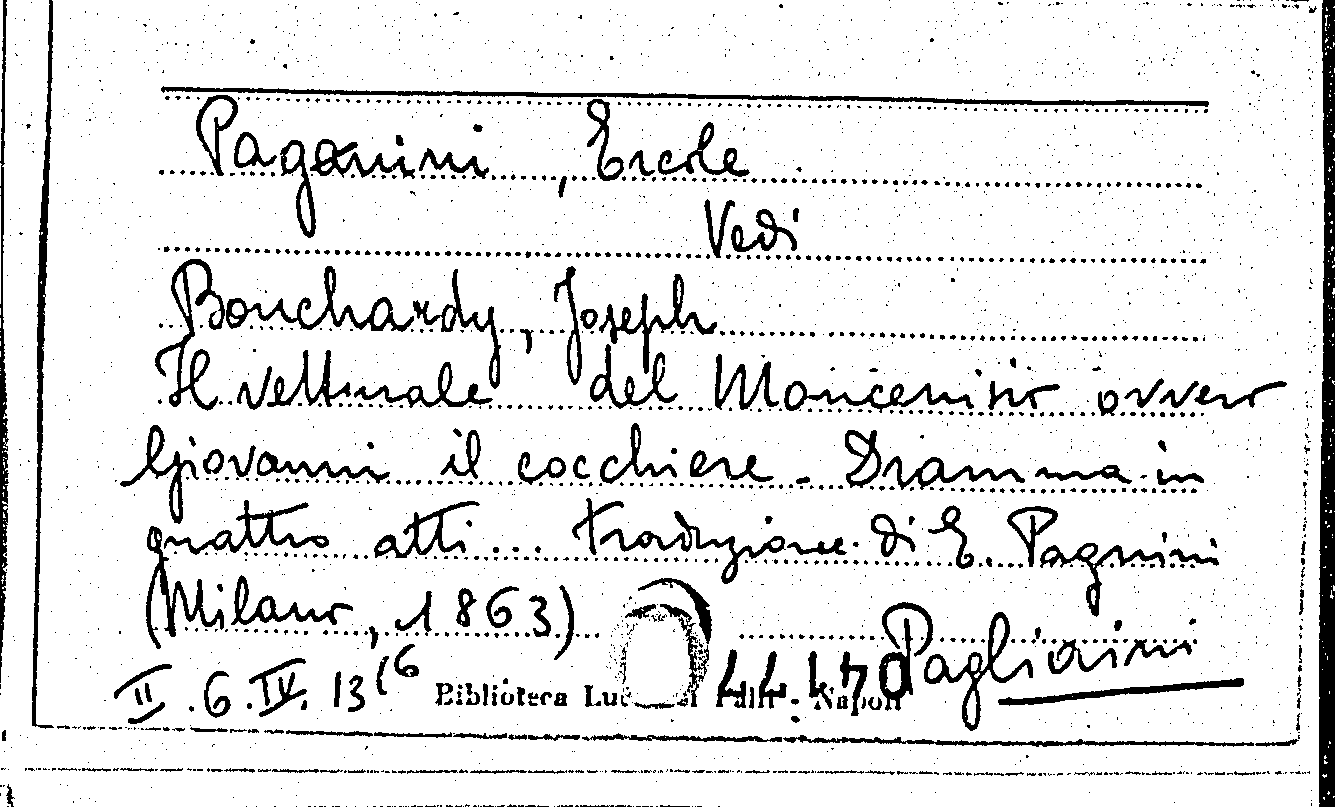 Paganini, Ercole
Vedi
Bouchardy, Joseph
Il vetturale del Moncenisio ovvero
Giovanni il cocchiere - Dramma in
quattro atti... traduzione di E. Pagnini
(Milano, 1863)
Pagliaini
II.6.IV.13(6
Biblioteca Napoli